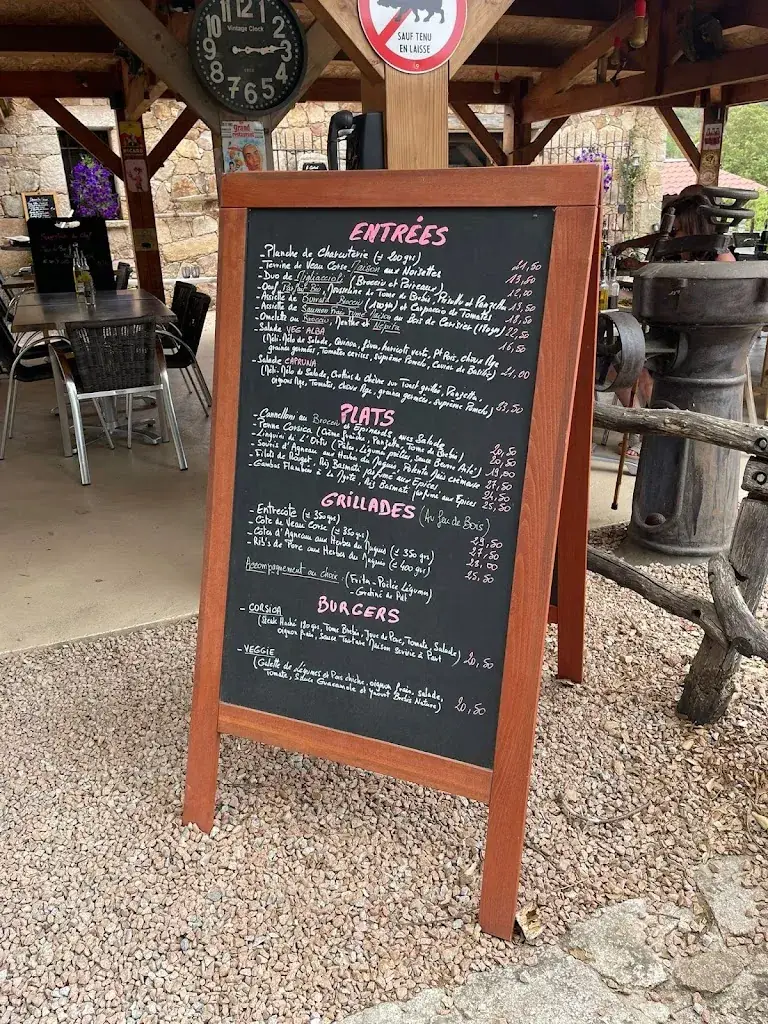 12
1
2
3
4
5
6
7
8
9
10
11
Vintage Clock
SAUF TENU
EN LAISSE
ENTRÉES
- Planche de Charcuterie (± 200 grs) 21,50
- Terrine de Veau Corse Maison aux Noisettes 13,50
- Duo de Migliaccioli (Brocciu et Poireaux) 12,00
- Oeuf Parfait Bio, Mousseline de Tome de Brebis, Persillé et Panzetta 13,50
- Assiette de Brocciu (200grs) et Carpaccio de Tomates 18,50
- Assiette de Saumon Fumé Maison au Bois de Cerisier (180grs) 22,50
- Omelette au Brocciu, Menthe et Népita 16,50
- Salade VEG'ALBA
(Méli-Mélo de Salade, Quinoa, fève, haricots verts, Pt Pois, choux Rge
graines germées, Tomates cerises, suprême Pomelo, Caviar de Basilic) 21,00
- Salade CAPRUNA
(Méli-Mélo de Salade, Crottins de Chèvre sur Toast grillés, Panzetta,
oignons Rge, Tomates, choux Rge, graines germées, suprême Pomelo) 23,50
PLATS
- Cannelloni au Brocciu et Epinards avec Salade 20,50
- Penne Corsica (Crème fraîche, Panzetta, Tome de Brebis) 20,50
- Linguini di L'Ortu (Pates, Légumes poêlés, Sauce Beurre Ail) 19,00
- Souris d'Agneau aux Herbes du Maquis, Polenta Maïs crémeuse 27,50
- Filets de Rouget, Riz Basmati parfumé aux Epices 24,50
- Gambas Flambées à La Myrte, Riz Basmati parfumé aux Epices 25,50
GRILLADES (Au feu de Bois)
- Entrecôte (± 350 grs) 29,50
- Côte de Veau Corse (± 350 grs) 27,50
- Côtes d'Agneau aux Herbes du Maquis (± 350 grs) 28,00
- Rib's de Porc aux Herbes du Maquis (± 400 grs) 25,50
Accompagnement au choix: (Frites - Poêlée Légumes)
- Gratiné de Pdt)
BURGERS
- CORSICA
(Steak Haché 180 grs, Tome Brebis, Joue de Porc, Tomate, Salade
oignon frais, Sauce Tartare Maison servie à Part) 20,50
- VEGGIE
(Galette de Légumes et Pois chiche, oignon frais, salade,
Tomate, Sauce Guacamole et Yaourt Brebis Nature) 20,50